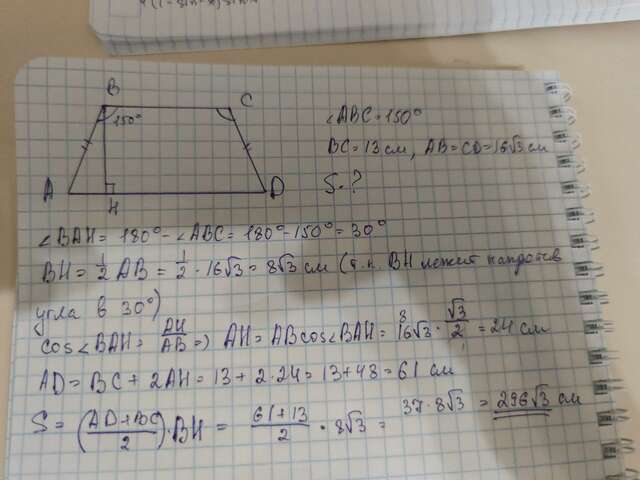 B
C
150°
A
H
D
∠ABC = 150°
BC = 13 см, AB = CD = 16√3 см
S - ?
∠BAH = 180° - ∠ABC = 180° - 150° = 30°
BH = 1/2 AB = 1/2 · 16√3 = 8√3 см (т.к. BH лежит напротив
угла в 30°)
cos∠BAH = AH/AB => AH = ABcos∠BAH = 16√3 · √3/2 = 24 см
8
AD = BC + 2AH = 13 + 2·24 = 13 + 48 = 61 см
S = (AD+BC/2)·BH = 61+13/2 · 8√3 = 37·8√3 = 296√3 см